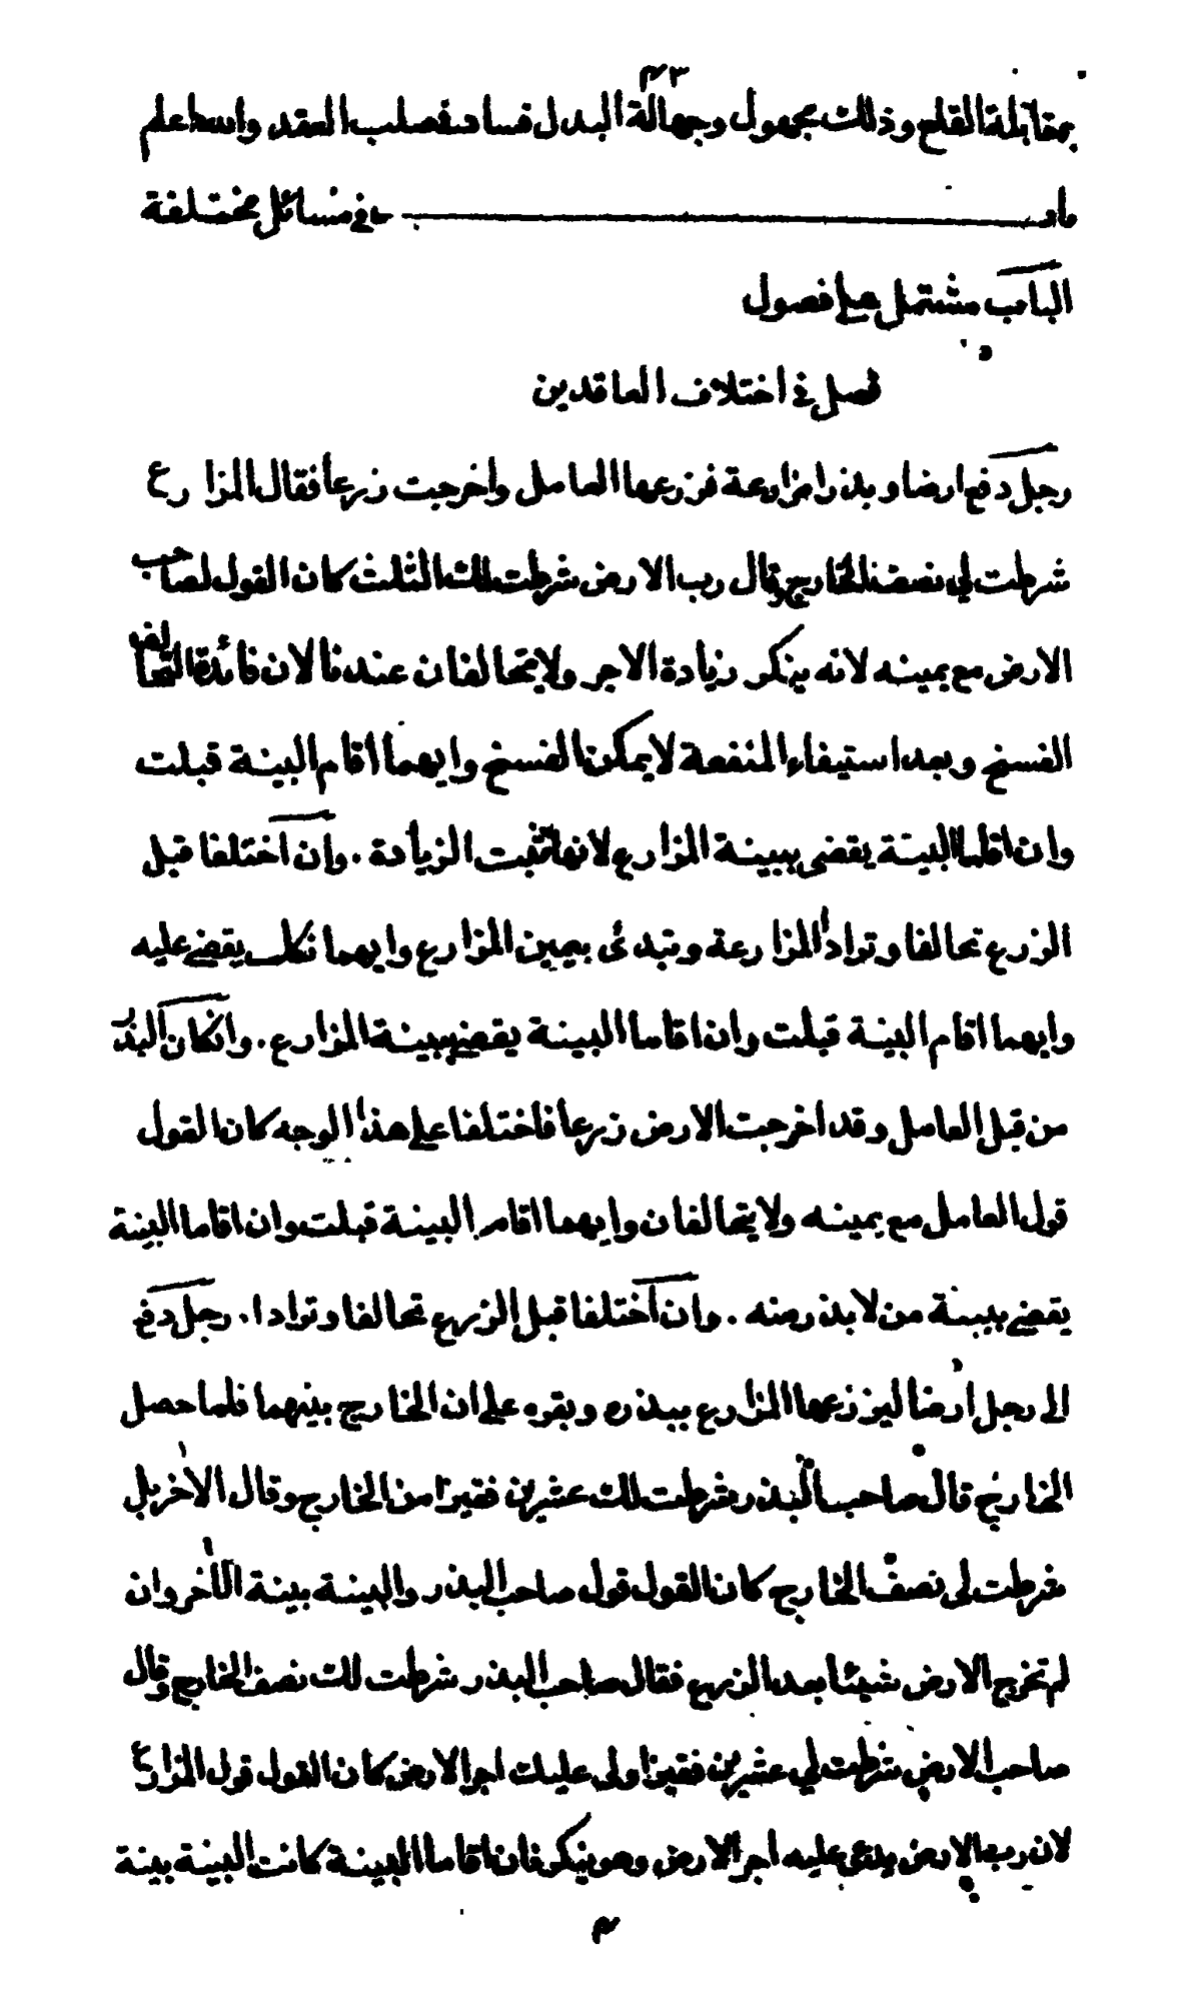 ٤٣
بمقابلة القلع وذلك مجهول وجهالة البدل فساد في صلب العقد والله اعلم
باب في مسائل مختلفة
الباب مشتمل على فصول
فصل في اختلاف العاقدين
رجل دفع ارضا و بذرا مزارعة فزرعها العامل واخرجت زرعا فقال المزارع
شرطت لي نصف الخارج وقال رب الارض شرطت لك الثلث كان القول لصاحب
الارض مع يمينه لانه ينكر زيادة الاجر ولا يتحالفان عندنا لان فائدة التحالف
الفسخ وبعد استيفاء المنفعة لا يمكن الفسخ وايهما اقام البينة قبلت
وان اقاما البينة يقضى ببينة المزارع لانها تثبت الزيادة . وان اختلفا قبل
الزرع تحالفا وترادا المزارعة وتبدئ بيمين المزارع وايهما نكل يقضي عليه
وايهما اقام البينة قبلت وان اقاما البينة يقضي ببينة المزارع . وان كان البذر
من قبل العامل وقد اخرجت الارض زرعا فاختلفا على هذا الوجه كان القول
قول العامل مع يمينه ولا يتحالفان وايهما اقام البينة قبلت وان اقاما البينة
يقضي ببينة من لا بذر منه . وان اختلفا قبل الزرع تحالفا وترادا . رجل دفع
الى رجل ارضا ليزرعها المزارع ببذره وبقره على ان الخارج بينهما فلما حصل
الخارج قال صاحب البذر شرطت لك عشرين قفيزا من الخارج وقال الاخر بل
شرطت لى نصف الخارج كان القول قول صاحب البذر والبينة بينة الآخر وان
لم تخرج الارض شيئا بعد الزرع فقال صاحب البذر شرطت لك نصف الخارج وقال
صاحب الارض شرطت لي عشرين قفيزا ولى عليك اجر الارض كان القول قول المزارع
لان رب الارض يدعى عليه اجر الارض وهو ينكر فان اقاما البينة كانت البينة بينة